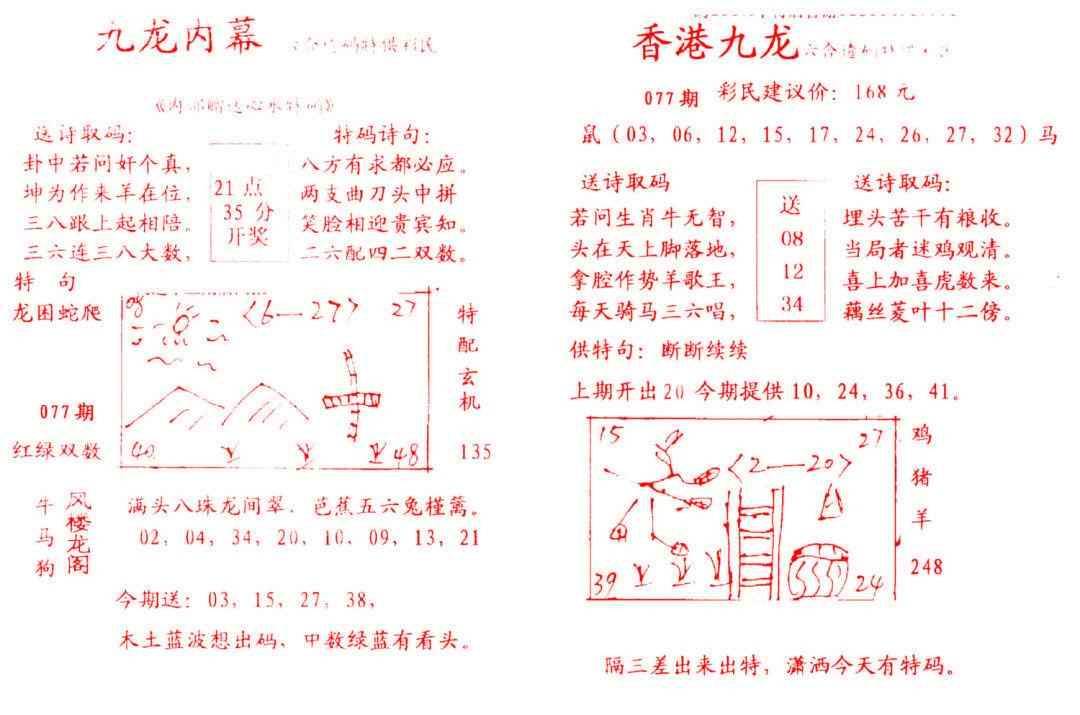 九龙内幕
送诗取码：
卦中若问奸个真，
坤为作来羊在位，
三八跟上起相陪。
三六连三八大数，
21点
35分
开奖
特码诗句：
八方有求都必应。
两支曲刀头中拼
笑脸相迎贵宾知。
二六配四二双数。
特 句
龙困蛇爬
077期
红绿双数
08
〈6—27〉
27
40
48
特配玄机
135
牛马狗
风楼龙阁
满头八珠龙间翠．芭蕉五六兔槿篱。
02，04，34，20，10，09，13，21
今期送：03，15，27，38，
木土蓝波想出码、中数绿蓝有看头。
香港九龙
077期 彩民建议价：168元
鼠（03，06，12，15，17，24，26，27，32）马
送诗取码
若问生肖牛无智，
头在天上脚落地，
拿腔作势羊歌王，
每天骑马三六唱，
送
08
12
34
送诗取码：
埋头苦干有粮收。
当局者迷鸡观清。
喜上加喜虎数来。
藕丝菱叶十二傍。
供特句：断断续续
上期开出20 今期提供10，24，36，41。
15
27
〈2—20〉
39
24
鸡
猪
羊
248
隔三差出来出特，潇洒今天有特码。